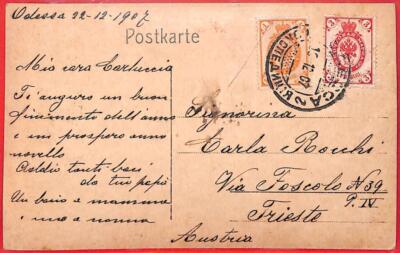 Odessa 22-12-1907
Postkarte
Mia cara Carluccia
Ti auguro un buon
finimento dell'anno
e un prospero anno
novello
Addio tanti baci
da tuo papà
Un bacio a mamma
e uno a nonna
Signorina
Carla Rocchi
Via Foscolo N 39
P. IV
Trieste
Austria
ОДЕССА
ЭКСПЕДИЦ
12 07
3
3